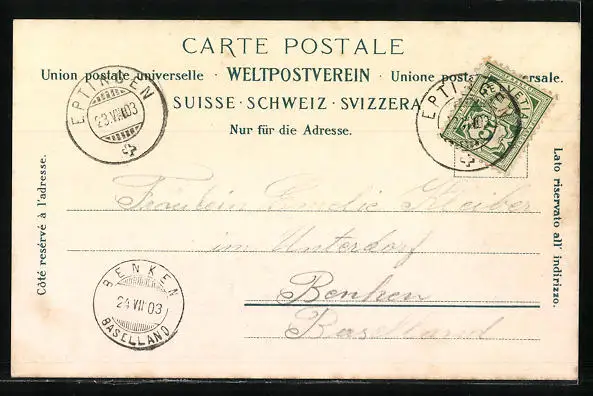 CARTE POSTALE
Union postale universelle · WELTPOSTVEREIN · Unione postale universale.
SUISSE · SCHWEIZ · SVIZZERA
Nur für die Adresse.
Côté reservé à l'adresse.
Lato riservato all' indirizzo.
EPTINGEN
23.VII.03
EPTINGEN
HELVETIA
5
Fräulein Emelie Kleiber
im Unterdorf
Benken
Baselland
BENKEN
24 VII 03
BASELLAND